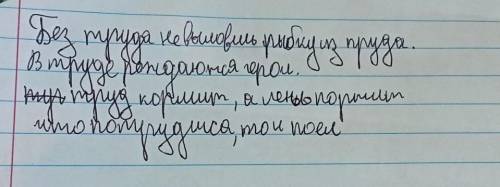 Без труда не выловишь рыбку из пруда.
В труде рождаются герои.
труд кормит, а лень портит
что потрудился, тот поел